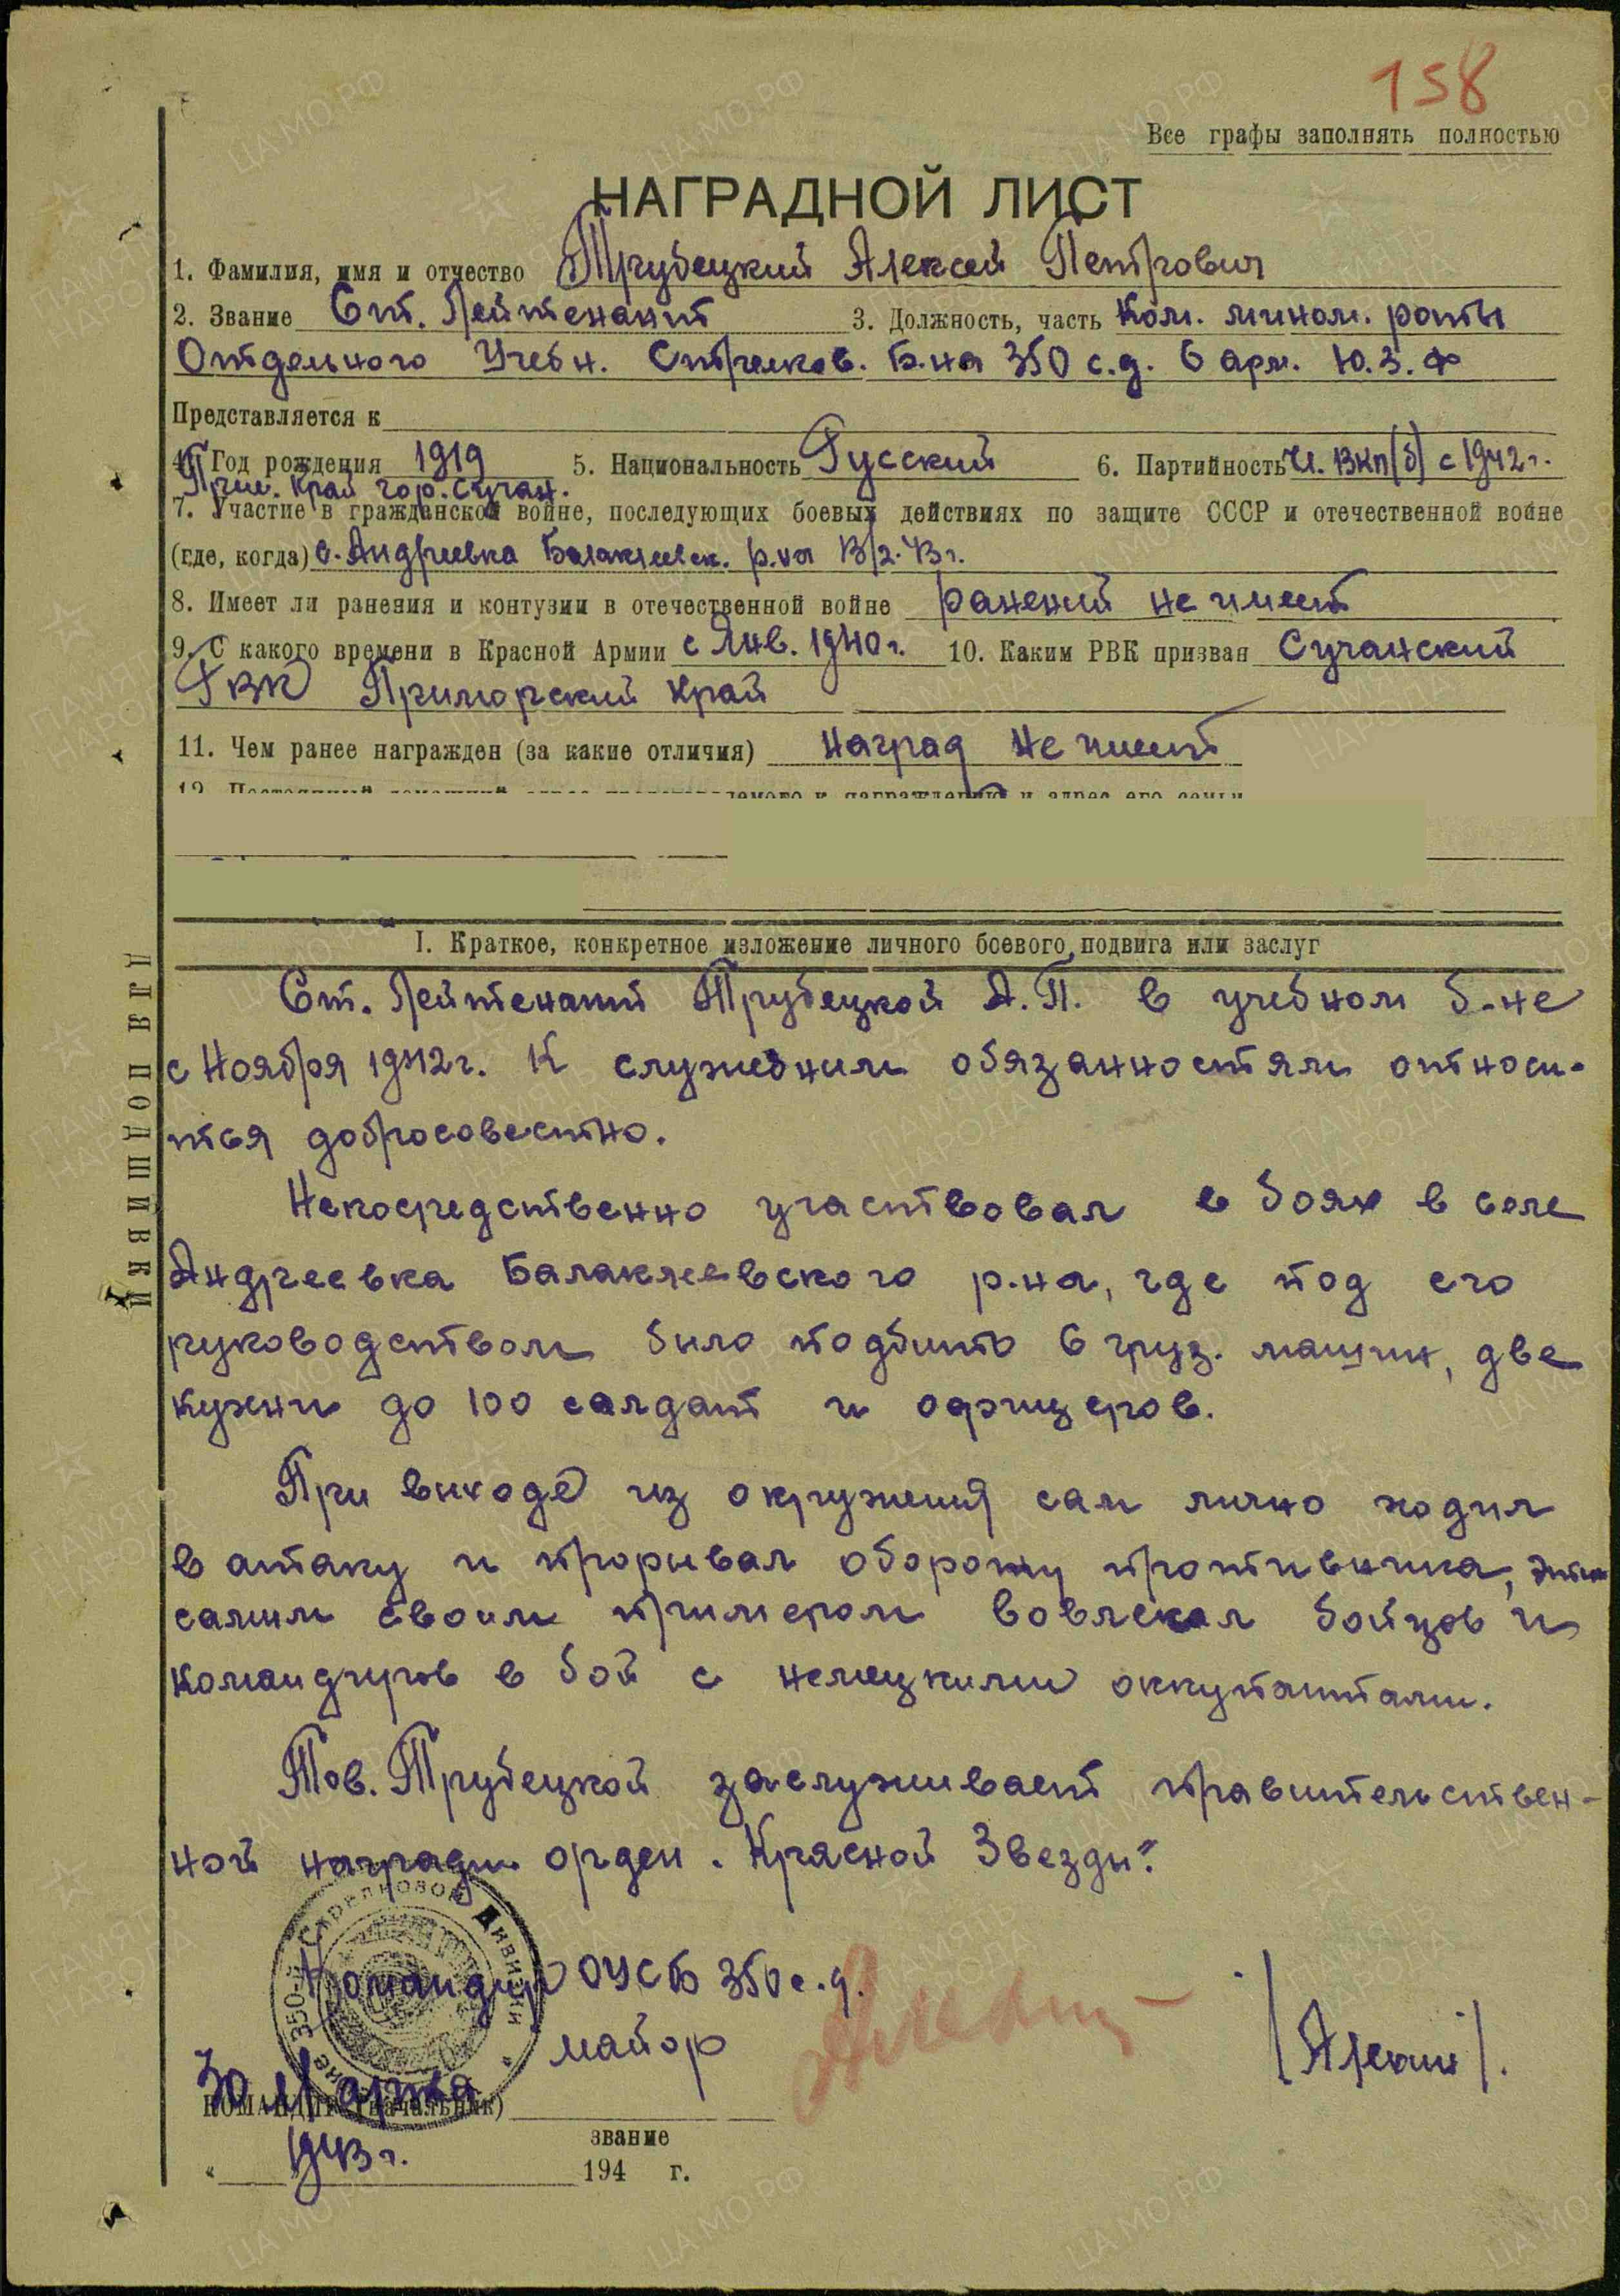 158
Все графы заполнять полностью
НАГРАДНОЙ ЛИСТ
1. Фамилия, имя и отчество Трубецкий Алексей Петрович
2. Звание Ст. Лейтенант 3. Должность, часть Ком. мином. роты
Отдельного Учебн. Стрелков. Б-на 350 с.д. 6 арм. Ю.З.Ф
Представляется к
4. Год рождения 1919 5. Национальность Русский 6. Партийность Чл. ВКП(б) с 1942 г.
Прим. край гор. Сучан.
7. Участие в гражданской войне, последующих боевых действиях по защите СССР и отечественной войне
(где, когда) с. Андреевка Балаклеевск. р-на В/2-43 г.
8. Имеет ли ранения и контузии в отечественной войне ранений не имеет
9. С какого времени в Красной Армии с Янв. 1940 г. 10. Каким РВК призван Сучанский
ГВК Приморский край
11. Чем ранее награжден (за какие отличия) наград не имеет
I. Краткое, конкретное изложение личного боевого подвига или заслуг
Ст. Лейтенант Трубецкой А.П. в учебном б-не
с Ноября 1942 г. К служебным обязанностям относи-
тся добросовестно.
Непосредственно участвовал в боях в селе
Андреевка Балаклеевского р-на, где под его
руководством было подбито 6 груз. машин, две
кухни до 100 салдат и офицеров.
При выходе из окружения сам лично ходил
в атаку и прорывал оборону противника, этим
самим своим примером вовлекал бойцов и
командиров в бой с немецкими оккупантами.
Тов. Трубецкой заслуживает правительствен-
ной награды орден „Красной Звезды“.
350-й Стрелковой Дивизии
Командир ОУСБ 350 с.д.
майор
30 Марта
КОМАНДИР (начальник)
звание
1943 г.
„ 194 г.
ДЛЯ ПОДШИВКИ